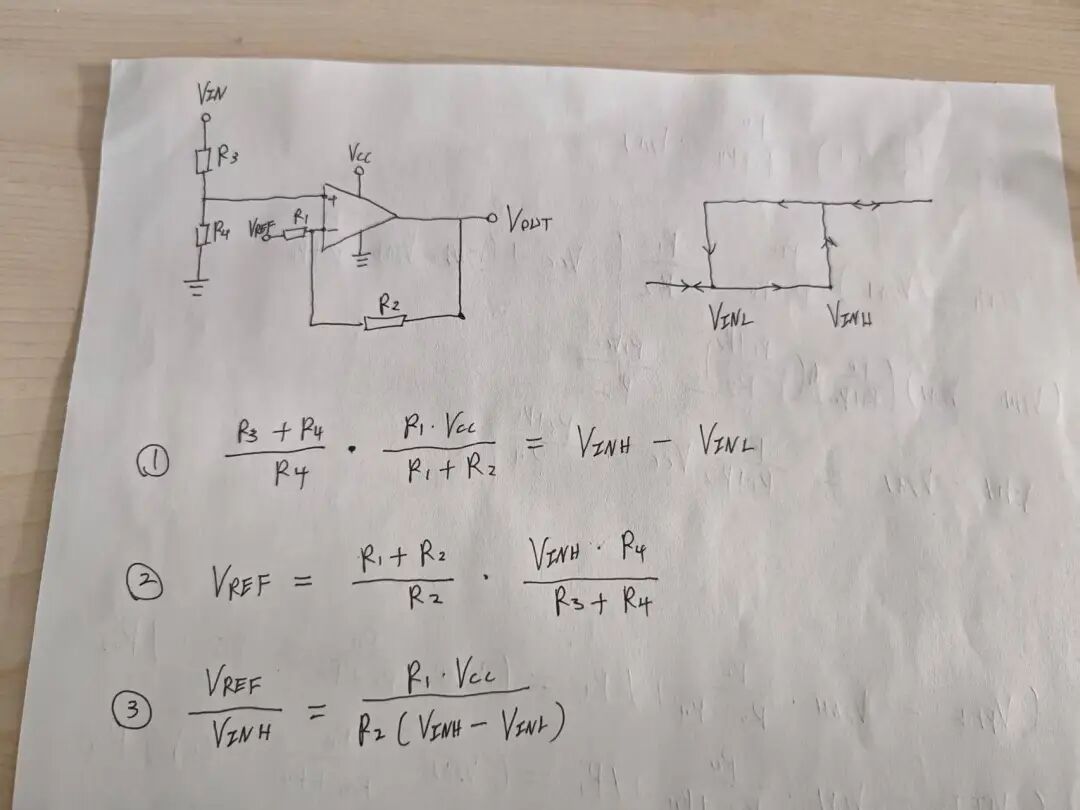 VIN
R3
VCC
+
R4
VREF
R1
−
VOUT
R2
VINL
VINH
① (R3 + R4)/R4 · (R1 · VCC)/(R1 + R2) = VINH − VINL
② VREF = (R1 + R2)/R2 · (VINH · R4)/(R3 + R4)
③ VREF/VINH = (R1 · VCC)/(R2 (VINH − VINL))